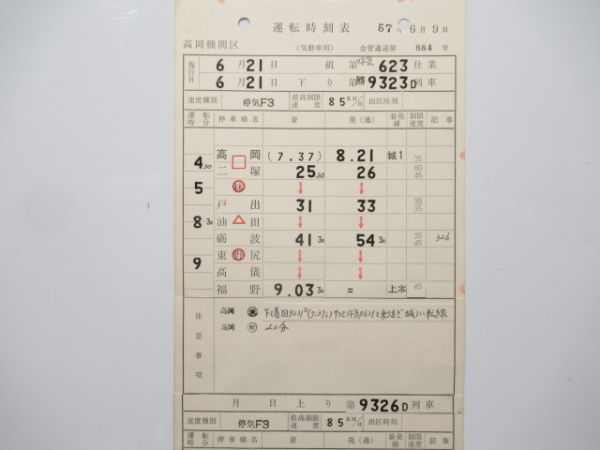 運転時刻表 57 6月9日
高岡機関区 (気動車用) 金管通達第 884 号
施行日 6月21日 組 第 623 仕業
6月21日 下り 第 9323D 列車
速度種別 停気F3 最高制限速度 85 KM/H 出区時刻
運転時分 停車場名 着 発(通) 着発線 制限速度 記事
高岡 (7.37) 8.21 城1 35
4 30
二塚 25 30 26 80 45
5 林 ↓ ↓
戸出 31 33 35 35
8 30 油田 ↓ ↓
砺波 41 30 54 30 35 45 326
東野尻 ↓ ↓
9
高儀 ↓ ↓
福野 9.03 30 = 上本 65
注意事項
高岡
高岡
月 日 上り 第 9326D 列車
速度種別 停気F3 最高制限速度 85 KM/H 出区時刻
運転時分 停車場名 着 発(通) 着発線 制限速度 記事